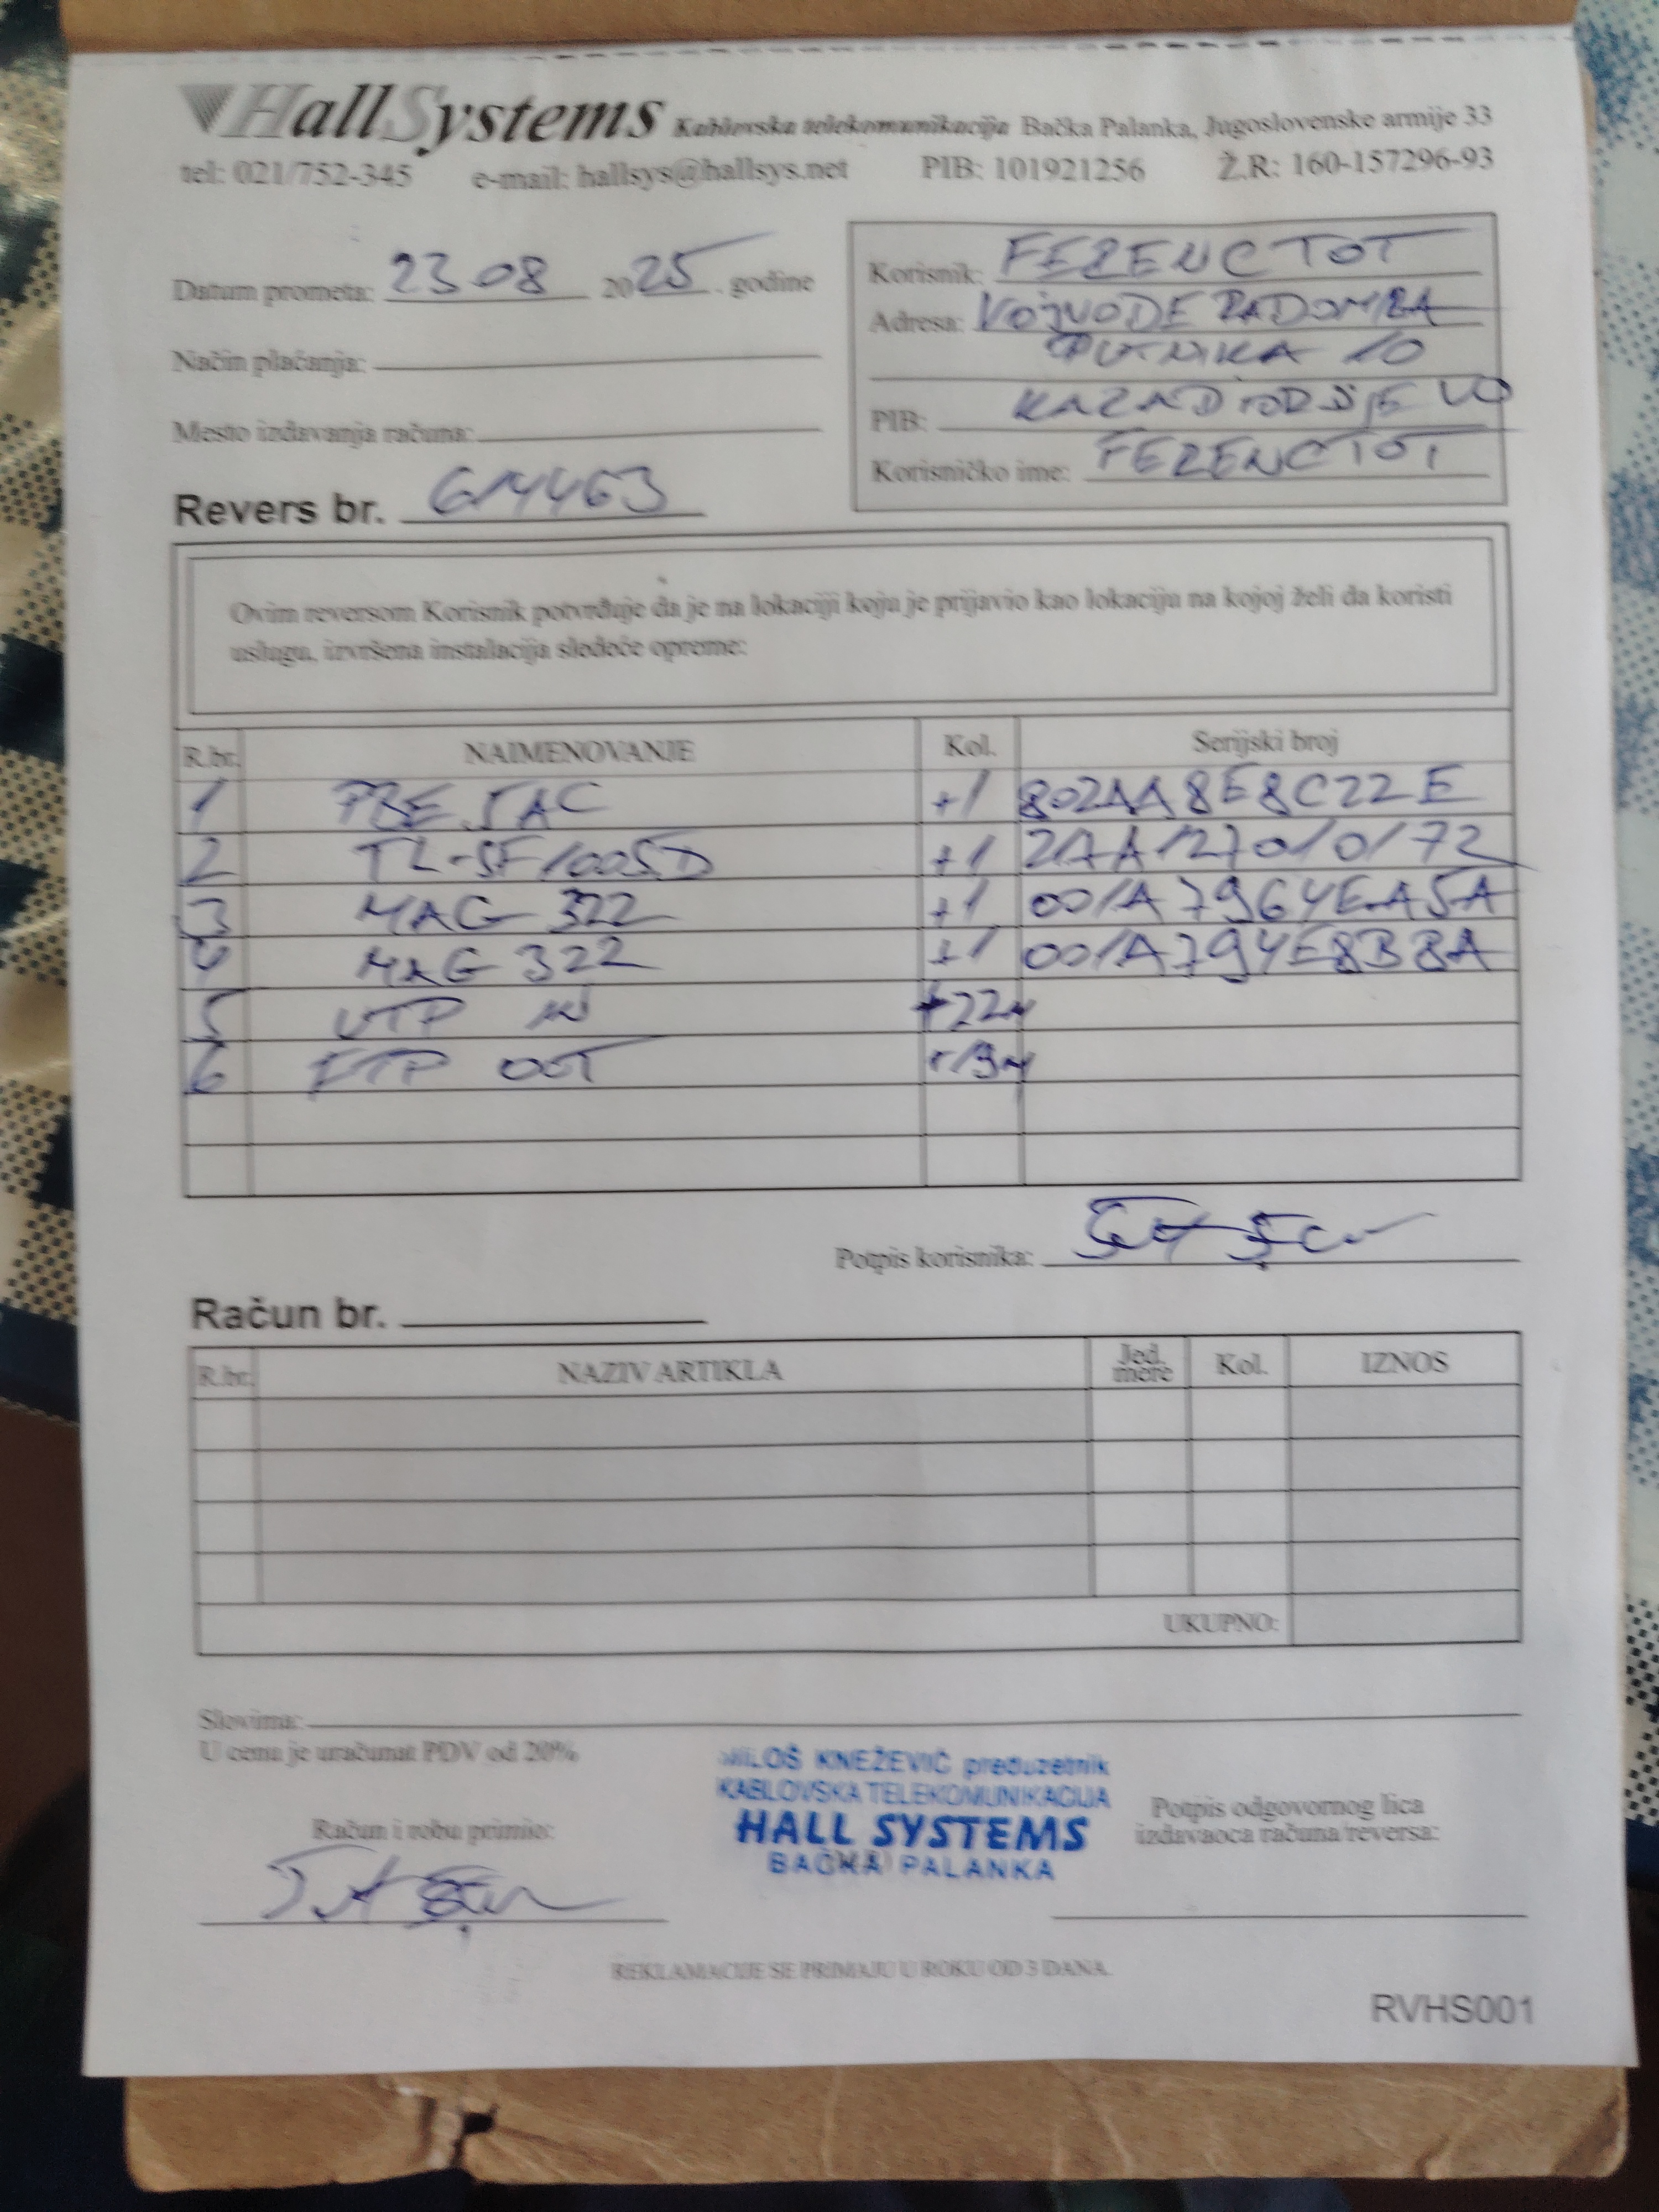 HallSystems Kablovska telekomunikacija Bačka Palanka, Jugoslovenske armije 33
tel: 021/752-345 e-mail: hallsys@hallsys.net PIB: 101921256 Ž.R: 160-157296-93
Datum prometa: 23 08 2025. godine
Način plaćanja:
Mesto izdavanja računa:
Revers br. 614463
Korisnik: FERENC TOT
Adresa: VOJVODE RADOMIRA
PUTNIKA 10
PIB: KARAĐORĐEVO
Korisničko ime: FERENCTOT
Ovim reversom Korisnik potvrđuje da je na lokaciji koju je prijavio kao lokaciju na kojoj želi da koristi
uslugu, izvršena instalacija sledeće opreme:
R.br. NAIMENOVANJE Kol. Serijski broj
1 PBE 5AC +1 802AA8E8C22E
2 TL-SF1005D +1
3 MAG 322 +1 001A7964EA5A
4 MAG 322 +1 001A794E8B8A
5 UTP IN +22m
6 FTP OUT +13m
Potpis korisnika:
Račun br.
R.br. NAZIV ARTIKLA Jed. mere Kol. IZNOS
UKUPNO:
Slovima:
U cenu je uračunat PDV od 20%
MILOŠ KNEŽEVIĆ preduzetnik
KABLOVSKA TELEKOMUNIKACIJA
HALL SYSTEMS
BAČKA PALANKA
Račun i robu primio:
Potpis odgovornog lica
izdavaoca računa/reversa:
REKLAMACIJE SE PRIMAJU U ROKU OD 3 DANA.
RVHS001